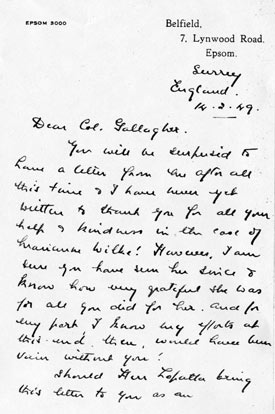 EPSOM 9000
Belfield,
7, Lynwood Road,
Epsom.
Surrey
England.
14.2.49.
Dear Col. Gallagher.
You will be surprised to
have a letter from me after all
this time & I have never yet
written to thank you for all your
help & kindness in the case of
Marianne Wilke! However, I am
sure you have seen her since &
know how very grateful she was
for all you did for her. And for
my part I know my efforts at
this end, then, would have been
vain without you!
Should Herr bring
this letter to you as an